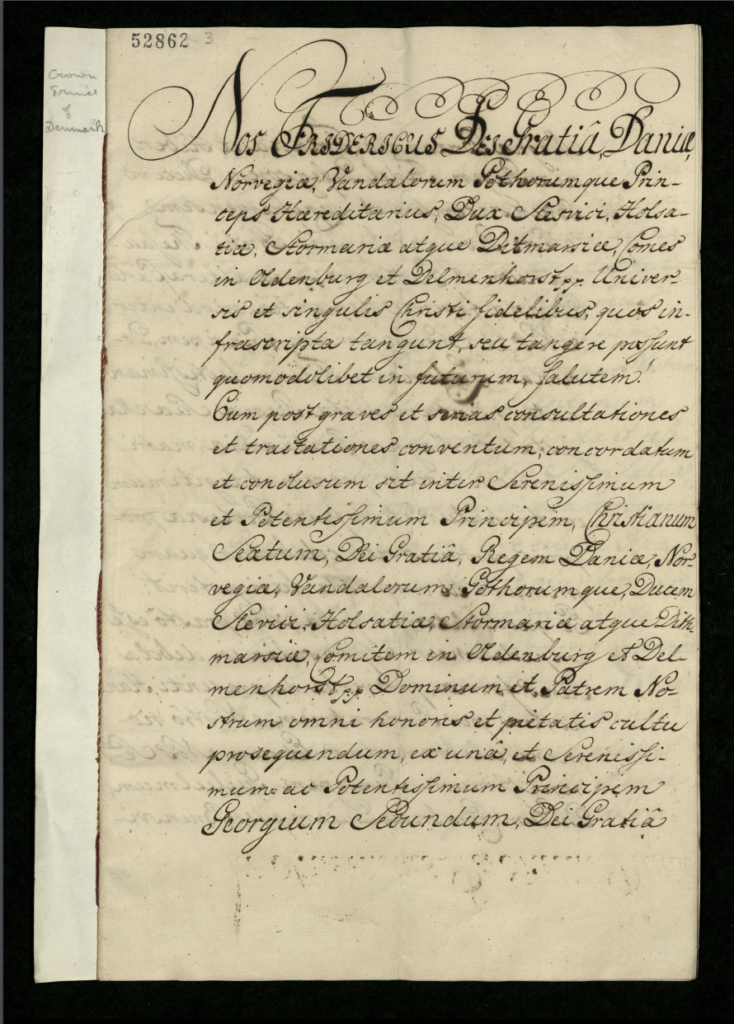 52862 3
Crown
Prince
of
Denmark
Nos Fridericus Dei Gratiâ, Daniæ,
Norvegiæ, Vandalorum Gothorumque Prin-
ceps Hæreditarius, Dux Slesvici, Holsa-
tiæ, Stormariæ atque Ditmarsiæ, Comes
in Oldenburg et Delmenhorst pp. Univer-
sis et singulis Christi fidelibus, quos in-
frascripta tangunt, seu tangere possunt
quomodolibet in futurum, salutem!
Cum post graves et serias consultationes
et tractationes conventum, concordatum
et conclusum sit inter Serenissimum
et Potentissimum Principem, Christianum
Sextum, Dei Gratiâ, Regem Daniæ, Nor-
vegiæ, Vandalorum Gothorumque, Ducem
Slevici, Holsatiæ, Stormariæ atque Dith-
marsiæ, Comitem in Oldenburg et Del-
menhorst pp. Dominum et Patrem No-
strum omni honoris et pietatis cultu
prosequendum, ex unâ, et Serenissi-
mum ac Potentissimum Principem
Georgium Secundum, Dei Gratiâ